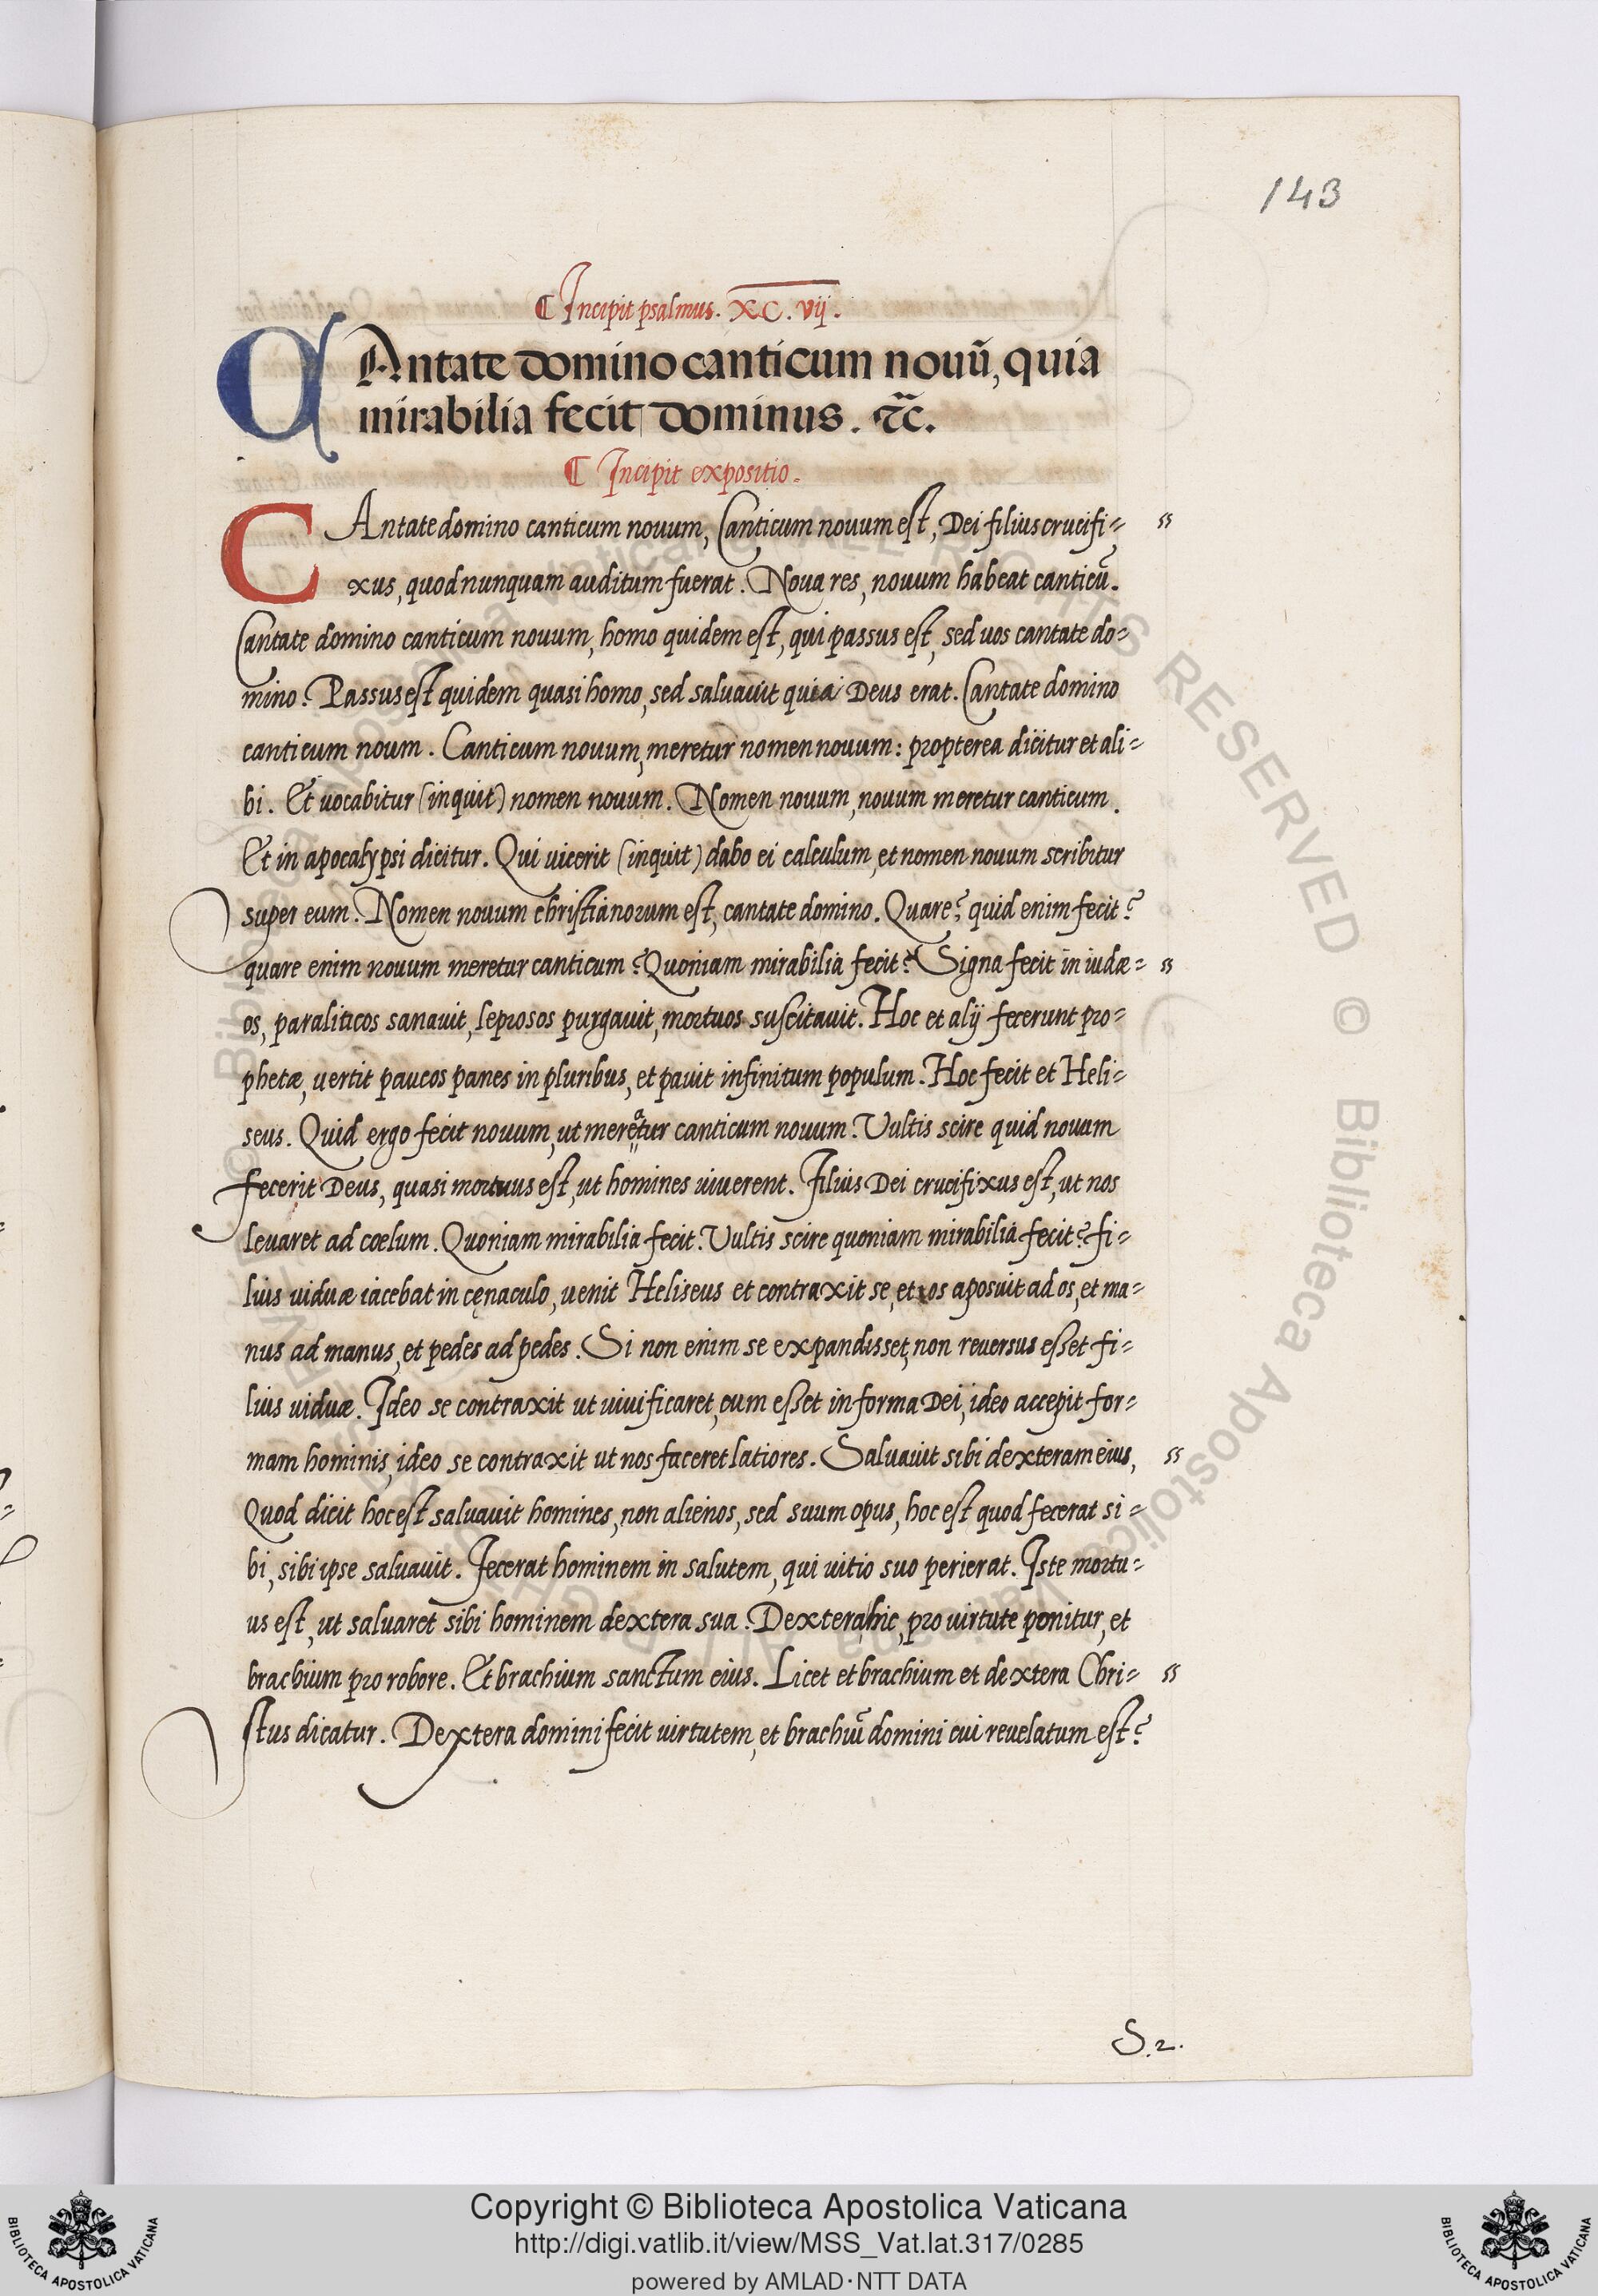 143
¶ Incipit psalmus. XC. vij.
CAntate domino canticum nouũ, quia
mirabilia fecit dominus. &c̃.
¶ Incipit expositio.
CAntate domino canticum nouum, Canticum nouum est, Dei filius crucifi= "
xus, quod nunquam auditum fuerat. Noua res, nouum habeat canticũ.
Cantate domino canticum nouum, homo quidem est, qui passus est, sed uos cantate do=
mino? Passus est quidem quasi homo, sed saluauit quia Deus erat. Cantate domino
canticum noum. Canticum nouum, meretur nomen nouum: propterea dicitur et ali=
bi. Et uocabitur (inquit) nomen nouum. Nomen nouum, nouum meretur canticum.
Et in apocalypsi dicitur. Qui uicerit (inquit) dabo ei calculum, et nomen nouum scribitur
super eum. Nomen nouum christianorum est, cantate domino. Quare? quid enim fecit?
quare enim nouum meretur canticum? Quoniam mirabilia fecit? Signa fecit in iudæ= "
os, paraliticos sanauit, leprosos purgauit, mortuos suscitauit. Hoc et alij fecerunt pro=
phetæ, uertit paucos panes in pluribus, et pauit infinitum populum. Hoc fecit et Heli=
seus. Quid ergo fecit nouum, ut meretur canticum nouum? Vultis scire quid nouam
fecerit Deus, quasi mortuus est, ut homines uiuerent. Filius Dei crucifixus est, ut nos
leuaret ad cœlum. Quoniam mirabilia fecit. Vultis scire quoniam mirabilia fecit? fi=
lius uiduæ iacebat in cęnaculo, uenit Heliseus et contraxit se, et os aposuit ad os, et ma=
nus ad manus, et pedes ad pedes. Si non enim se expandisset, non reuersus esset fi=
lius uiduæ. Ideo se contraxit ut uiuificaret, cum esset in forma Dei, ideo accepit for=
mam hominis, ideo se contraxit ut nos faceret latiores. Saluauit sibi dexteram eius, "
Quod dicit hoc est saluauit homines, non alienos, sed suum opus, hoc est quod fecerat si=
bi, sibi ipse saluauit. Fecerat hominem in salutem, qui uitio suo perierat. Iste mortu=
us est, ut saluaret sibi hominem dextera sua. Dextera hic, pro uirtute ponitur, et
brachium pro robore. Et brachium sanctum eius. Licet et brachium et dextera Chri= "
stus dicatur. Dextera domini fecit uirtutem, et brachiũ domini cui reuelatum est?
S.2.
Copyright © Biblioteca Apostolica Vaticana
http://digi.vatlib.it/view/MSS_Vat.lat.317/0285
powered by AMLAD·NTT DATA